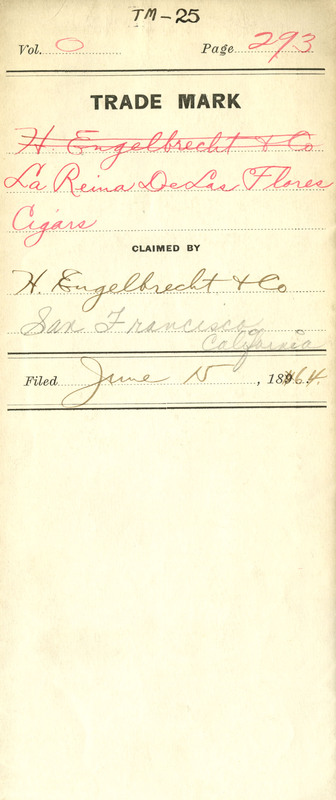 TM-25
Vol. O Page 293
TRADE MARK
H Engelbrecht & Co
La Reina De Las Flores
Cigars
CLAIMED BY
H. Engelbrecht & Co
San Francisco
California
Filed June 15, 1864.